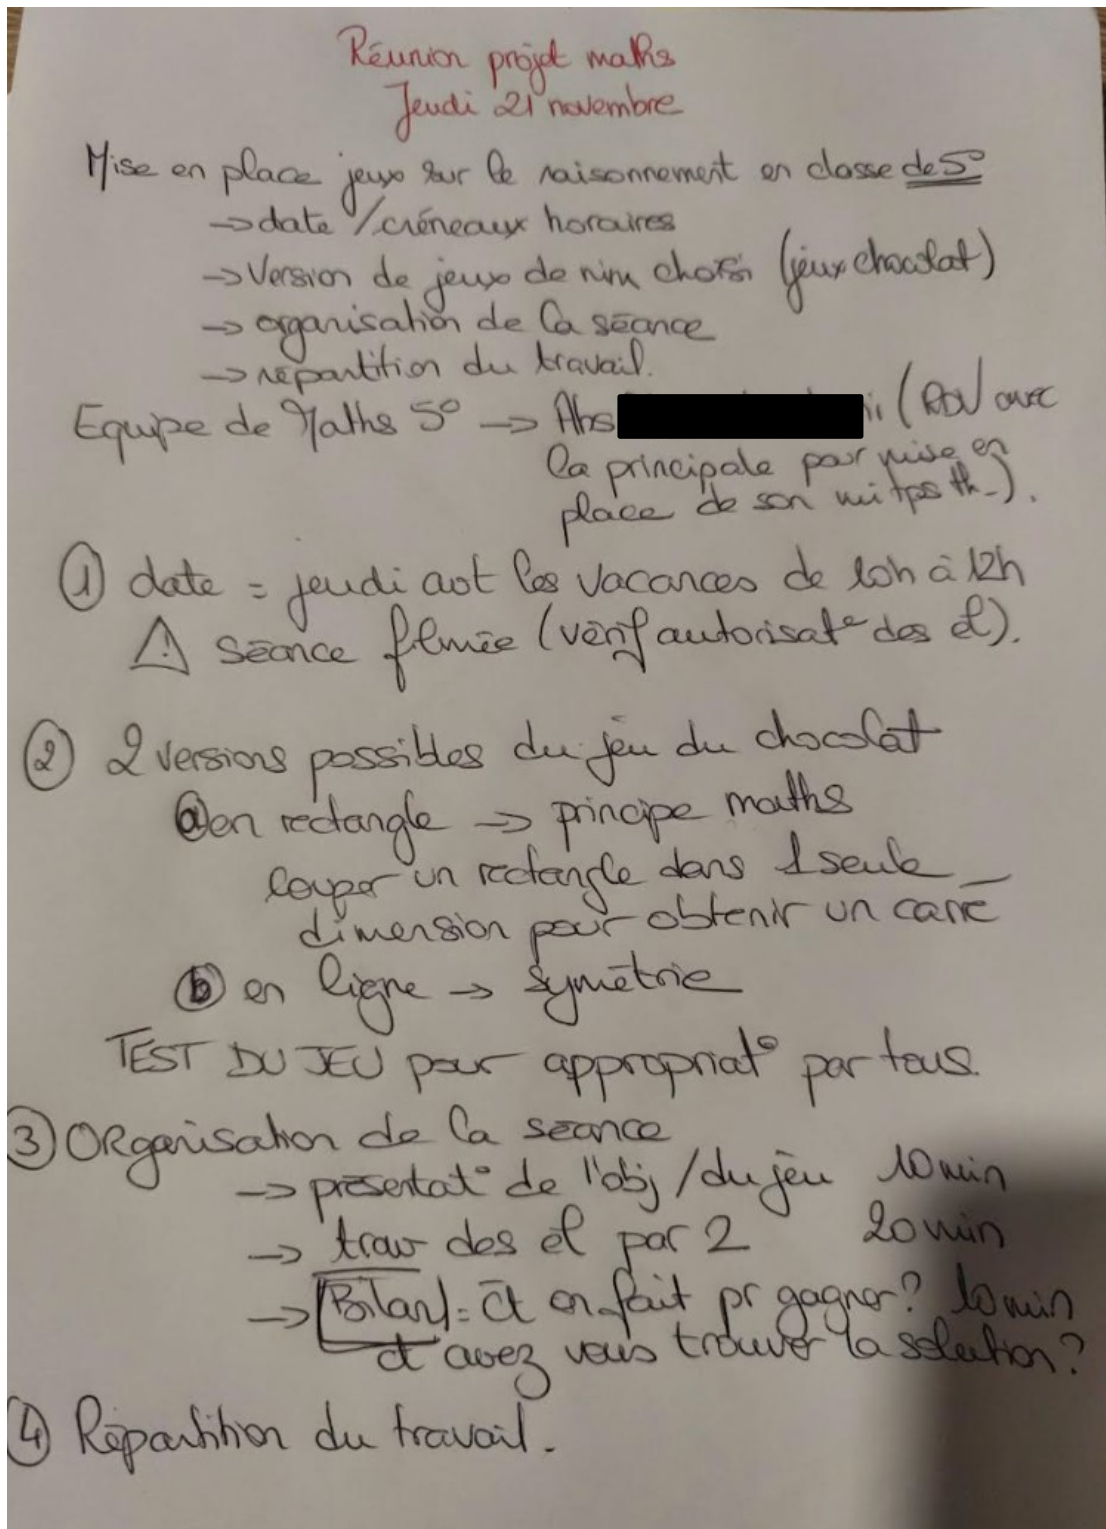 Réunion projet maths
Jeudi 21 novembre
Mise en place jeux sur le raisonnement en classe de 5°
→ date / créneaux horaires
→ Version de jeux de nim choisi (jeux chocolat)
→ organisation de la séance
→ répartition du travail.
Equipe de Maths 5° → Abs (RDV avec
la principale pour mise en
place de son mi tps th_).
① date = jeudi avt les vacances de 10h à 12h
⚠ séance filmée (vérif autorisat° des él).
② 2 versions possibles du jeu du chocolat
ⓐ en rectangle → principe maths
couper un rectangle dans 1 seule
dimension pour obtenir un carré
ⓑ en ligne → symétrie
TEST DU JEU pour appropriat° par tous.
③ Organisation de la séance
→ présentat° de l'obj / du jeu 10 min
→ trav des él par 2 20 min
→ Bilan = ct on fait pr gagner ? 10 min
ct avez vous trouver la solution ?
④ Répartition du travail.